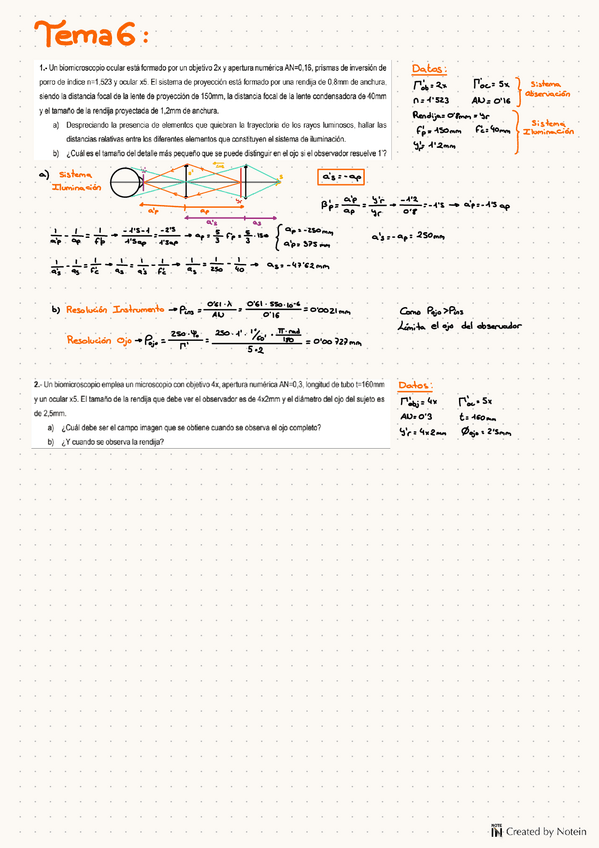 Tema 6:
1.- Un biomicroscopio ocular está formado por un objetivo 2x y apertura numérica AN=0,16, prismas de inversión de
porro de índice n=1.523 y ocular x5. El sistema de proyección está formado por una rendija de 0.8mm de anchura,
siendo la distancia focal de la lente de proyección de 150mm, la distancia focal de la lente condensadora de 40mm
y el tamaño de la rendija proyectada de 1,2mm de anchura.
a) Despreciando la presencia de elementos que quiebran la trayectoria de los rayos luminosos, hallar las
distancias relativas entre los diferentes elementos que constituyen el sistema de iluminación.
b) ¿Cuál es el tamaño del detalle más pequeño que se puede distinguir en el ojo si el observador resuelve 1'?
Datos:
Γ'ob = 2x Γ'oc = 5x
n = 1'523 AN = 0'16
Sistema observación
Rendija = 0'8mm = yr
f'p = 150mm f'c = 40mm
y'r = 1'2mm
Sistema Iluminación
a) Sistema Iluminación
a'p ap
a's as
a's = -ap
β'p = a'p/ap = y'r/yr → -1'2/0'8 = -1'5 → a'p = -1'5 ap
1/a'p - 1/ap = 1/f'p → -1'5-1/1'5ap = -2'5/1'5ap → ap = 5/3 f'p = 5/3 · 150 { ap = -250mm a'p = 375mm
a's = -ap = 250mm
1/a's - 1/as = 1/f'c → 1/as = 1/a's - 1/f'c → 1/as = 1/250 - 1/40 → as = -47'62mm
b) Resolución Instrumento → ρins = 0'61·λ/AN = 0'61·550·10⁻⁶/0'16 = 0'0021mm
Resolución Ojo → ρojo = 250·Ψ/Γ' = 250·1'·1°/60'·π·rad/180/5·2 = 0'00727mm
Como ρojo > ρins
Límita el ojo del observador
2.- Un biomicroscopio emplea un microscopio con objetivo 4x, apertura numérica AN=0,3, longitud de tubo t=160mm
y un ocular x5. El tamaño de la rendija que debe ver el observador es de 4x2mm y el diámetro del ojo del sujeto es
de 2,5mm.
a) ¿Cuál debe ser el campo imagen que se obtiene cuando se observa el ojo completo?
b) ¿Y cuando se observa la rendija?
Datos:
Γ'obj = 4x Γ'oc = 5x
AN = 0'3 t = 160mm
y'r = 4x2mm Øojo = 2'5mm
NOTE IN Created by Notein